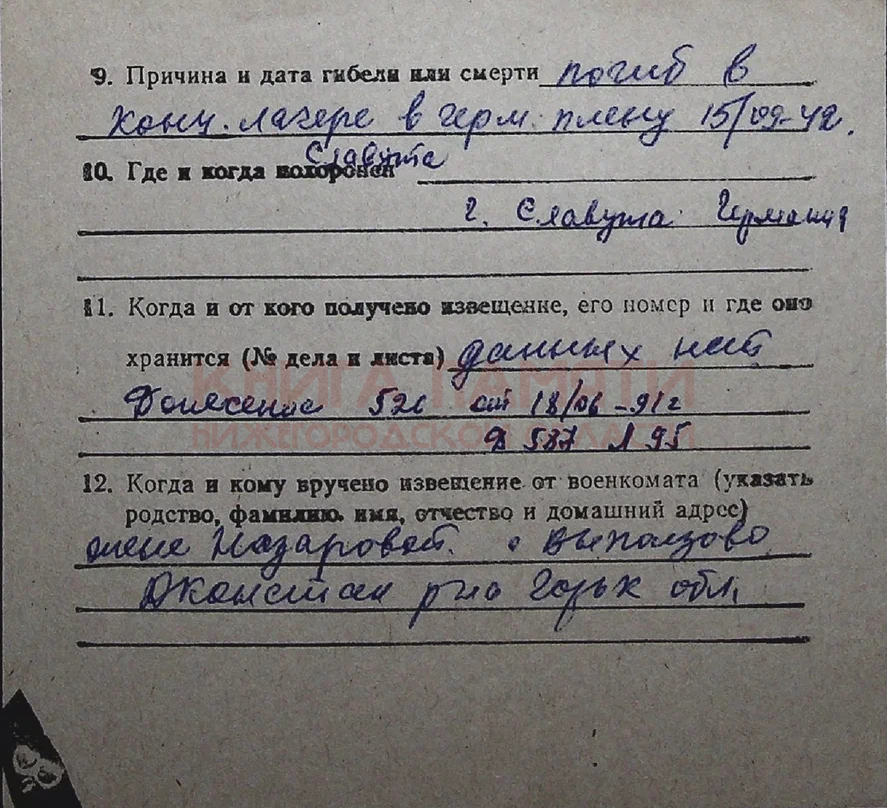 9. Причина и дата гибели или смерти погиб в
конц. лагере в герм. плену 15/09-42.
Славута
10. Где и когда похоронен
г. Славута Германия
11. Когда и от кого получено извещение, его номер и где оно
хранится (№ дела и листа) данных нет
КНИГА ПАМЯТИ
Донесение 52с от 18/06-91г
НИЖЕГОРОДСКОЙ ОБЛАСТИ
Д 587 Л 95
12. Когда и кому вручено извещение от военкомата (указать
родство, фамилию, имя, отчество и домашний адрес)
жене Назаровой. с Выползово
Дконстан р-на Горьк обл.